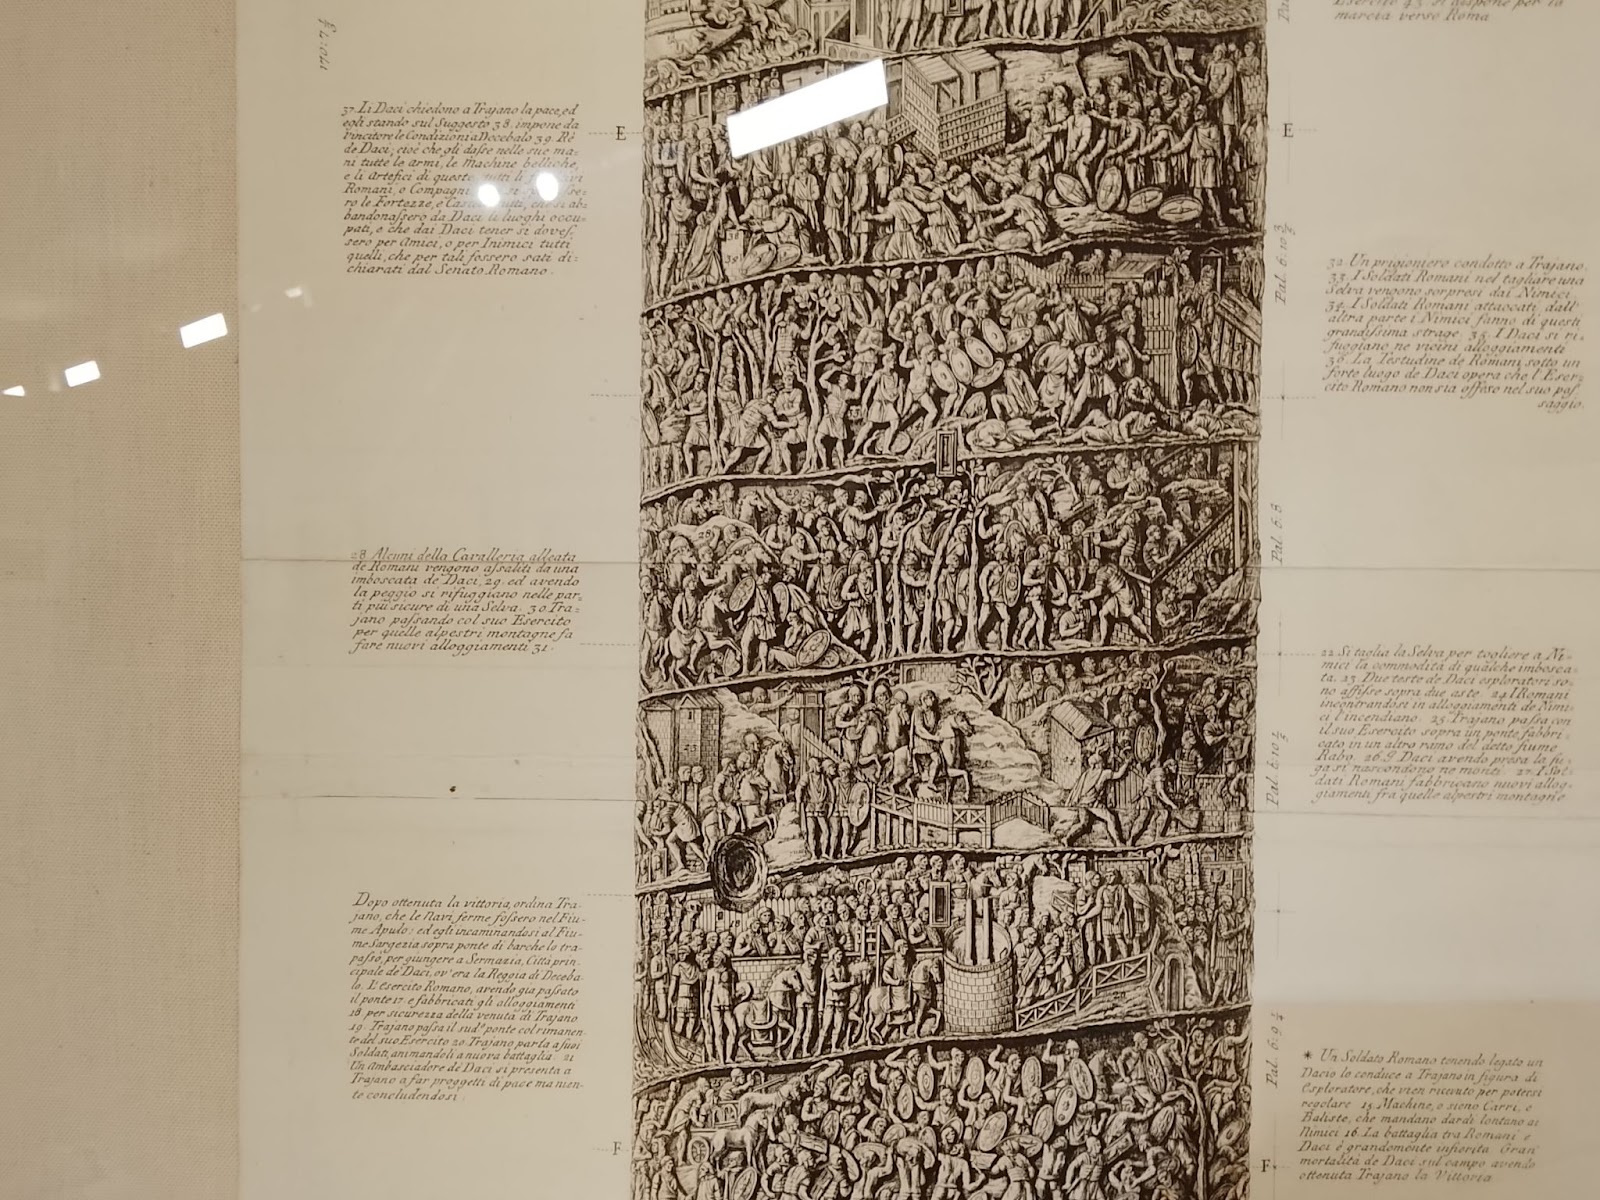 37. Li Daci chiedono a Trajano la pace, ed
egli stando sul Suggesto 38. impone da
Vincitore le Condizioni a Decebalo 39. Rè
de Daci; cioè che gli dasse nelle sue ma=
ni tutte le armi, le Machine belliche,
e li Artefici di queste, tutti li
Romani, o Compagni
ro le Fortezze, e che si ab=
bandonassero da Daci li luoghi occu=
pati, e che dai Daci tener si doves=
sero per Amici, o per Inimici tutti
quelli, che per tali fossero stati di=
chiarati dal Senato Romano.
E
28. Alcuni della Cavalleria alleata
de Romani vengono assaliti da una
imboscata de Daci, 29. ed avendo
la peggio si rifuggiano nelle par=
ti più sicure di una Selva. 30. Tra=
jano passando col suo Esercito
per quelle alpestri montagne fa
fare nuovi alloggiamenti 31.
Dopo ottenuta la vittoria, ordina Tra=
jano, che le Navi ferme fossero nel Fiu=
me Apulo: ed egli incaminandosi al Fiu=
me Sargezia sopra ponte di barche lo tra=
passò, per giungere a Sermazia, Città prin=
cipale de' Daci, ov'era la Reggia di Deceba=
lo. L'Esercito Romano, avendo gia passato
il ponte 17. e fabbricati gli alloggiamenti
18. per sicurezza della venuta di Trajano
19. Trajano passa il sud.º ponte col rimanen=
te del suo Esercito 20. Trajano parla a suoi
Soldati, animandoli a nuova battaglia. 21.
Un Ambasciadore de Daci si presenta a
Trajano a far proggetti di pace ma nien=
te concludendosi.
F
38
39
Esercito 43. si dispone per la
marcia verso Roma
E
Pal. 6. 10 3/5
32. Un prigioniero condotto a Trajano.
33. I Soldati Romani nel tagliare una
Selva vengono sorpresi dai Nimici
34. I Soldati Romani attaccati dall'
altra parte i Nimici fanno di questi
grandissima strage. 35. I Daci si ri=
fuggiano ne vicini alloggiamenti
36. La Testudine de Romani sotto un
forte luogo de Daci opera che l'Eser=
cito Romano non sia offeso nel suo pas=
saggio.
Pal. 6. 8
22. Si taglia la Selva per togliere a Ni=
mici la commodità di qualche imbosca=
ta. 23. Due teste de Daci esploratori so=
no affisse sopra due aste. 24. I Romani
incontrandosi in alloggiamenti de Nimi=
ci l'incendiano. 25. Trajano passa con
il suo Esercito sopra un ponte fabbri=
cato in un altro ramo del detto fiume
Rabo. 26. Daci avendo presa la fu=
ga si nascondono ne monti. 27. I Sol=
dati Romani fabbricano nuovi allog=
giamenti frà quelle alpestri montagne
Pal. 6. 9 1/2
* Un Soldato Romano tenendo legato un
Dacio lo conduce a Trajano in figura di
Esploratore, che vien ricevuto per potersi
regolare 15. Machine, o sieno Carri, o
Baliste, che mandano dardi lontano ai
Nimici 16. La battaglia tra Romani e
Daci è grandemente inferita Gran
mortalità de Daci sul campo avendo
ottenuta Trajano la Vittoria
F